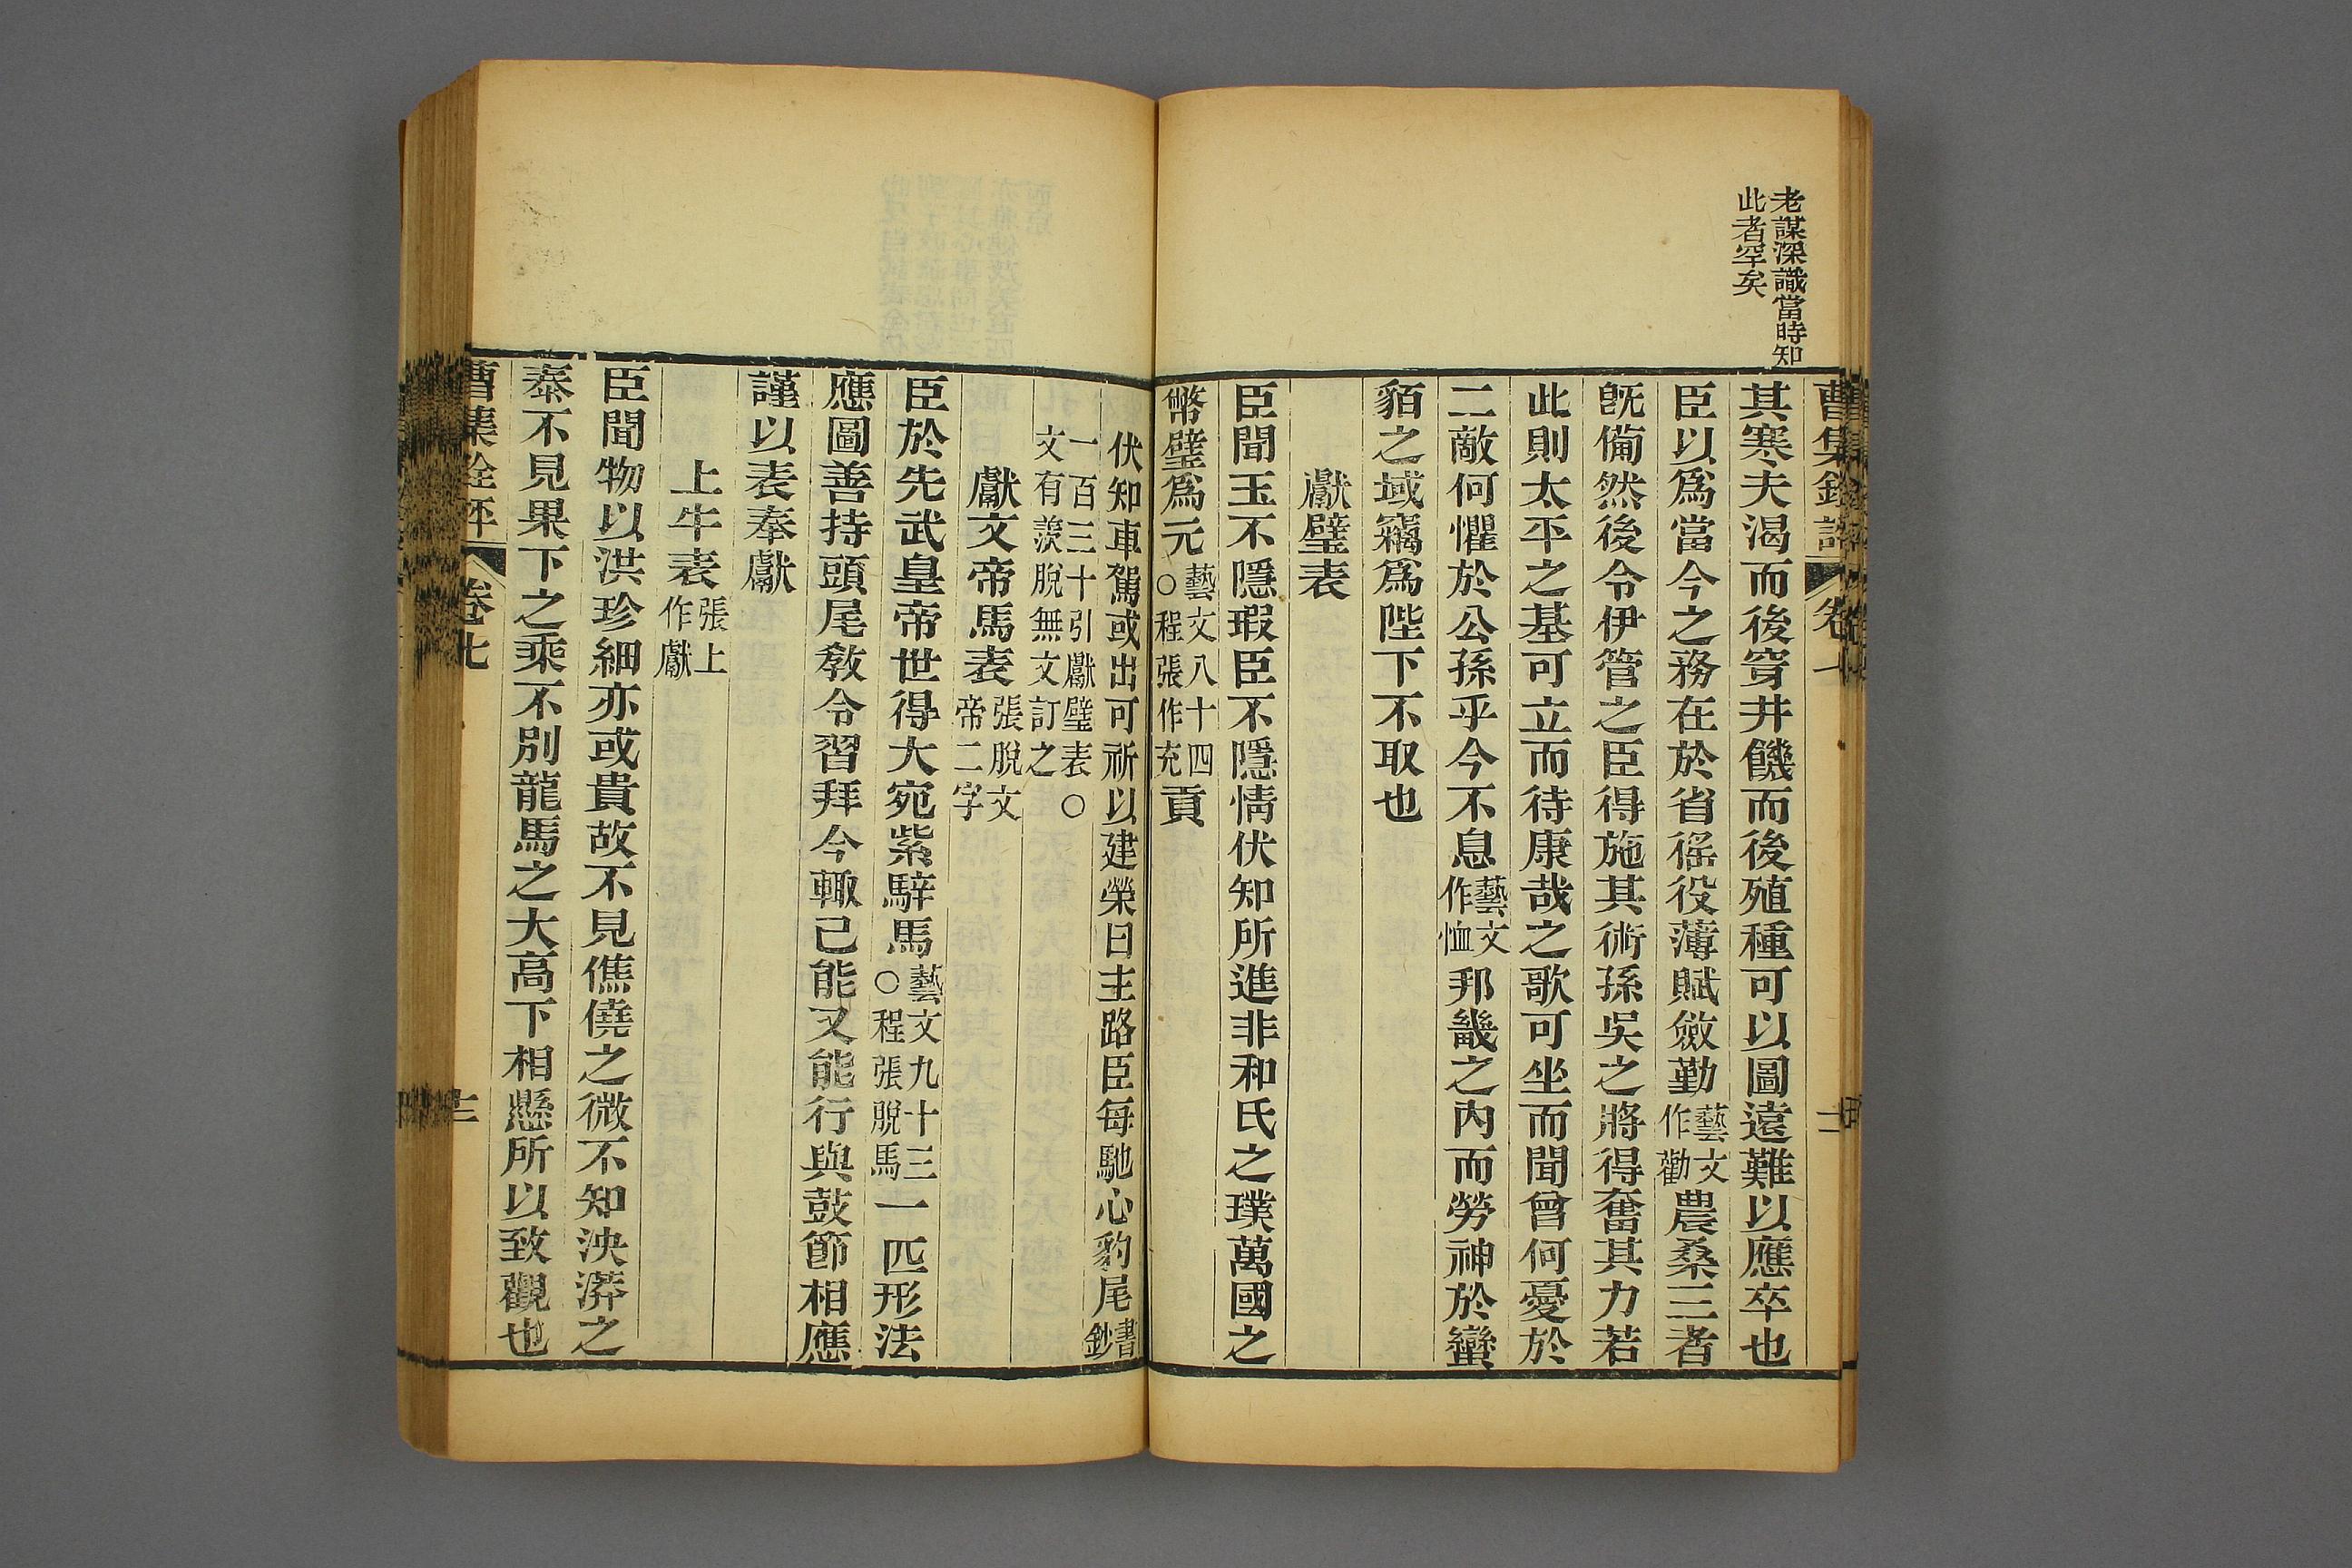 老謀深識當時知
此者罕矣
曹集銓評 卷七
其寒夫渴而後穿井饑而後殖種可以圖遠難以應卒也
臣以爲當今之務在於省徭役薄賦斂勤藝文作勸農桑三者
旣備然後令伊管之臣得施其術孫吳之將得奮其力若
此則太平之基可立而待康哉之歌可坐而聞曾何憂於
二敵何懼於公孫乎今不息藝文作恤邦畿之內而勞神於蠻
貊之域竊爲陛下不取也
獻璧表
臣聞玉不隱瑕臣不隱情伏知所進非和氏之璞萬國之
幣璧爲元藝文八十四○程張作充貢
伏知車駕或出可祈以建榮日主路臣每馳心豹尾書鈔
一百三十引獻璧表○文有羨脫無文訂之
獻文帝馬表張脫文帝二字
臣於先武皇帝世得大宛紫騂馬藝文九十三○程張脫馬一匹形法
應圖善持頭尾敎令習拜今輒已能又能行與鼓節相應
謹以表奉獻
上牛表張上作獻
臣聞物以洪珍細亦或貴故不見僬僥之微不知泱漭之
泰不見果下之乘不別龍馬之大高下相懸所以致觀也
曹集銓評 卷七